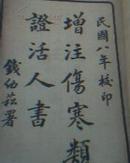 民國八年校印
增注傷寒類
證活人書
錢伯荪署